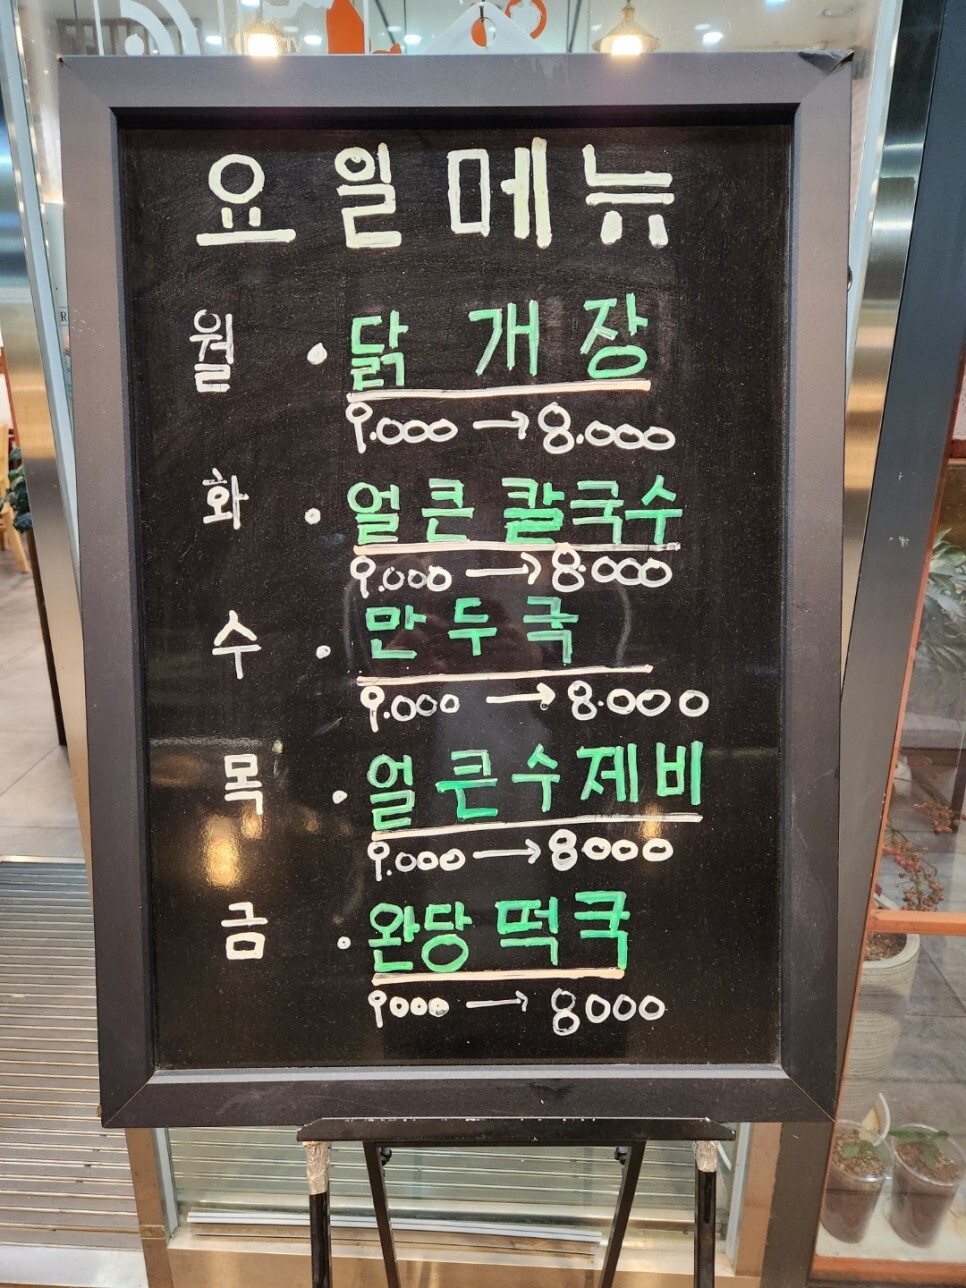 요일메뉴
월 · 닭개장
9.000 → 8.000
화 · 얼큰 칼국수
9.000 → 8.000
수 · 만두국
9.000 → 8.000
목 · 얼큰수제비
9.000 → 8000
금 · 완당떡국
9000 → 8000